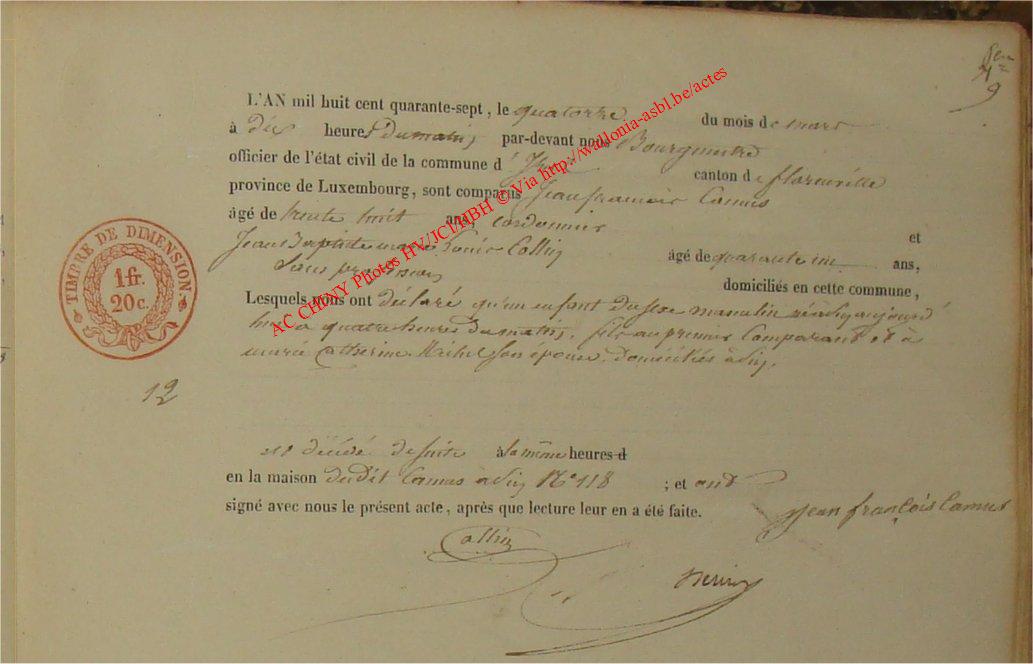 9
L'AN mil huit cent quarante-sept, le quatorze du mois de mars
à dix heures du matin par-devant nous Bourgmestre
officier de l'état civil de la commune d' canton de florenville
province de Luxembourg, sont comparus Jean françois Camus
âgé de trente huit ans, cordonnier et
Jean Baptiste Collin âgé de quarante un ans,
Sans profession domiciliés en cette commune,
Lesquels nous ont déclaré qu'un enfant du sexe masculin né aujourd
hui a quatre heures du matin, fils au premier Comparant et à
marie Catherine Michel Son épouse, domiciliés à
12
est décédé de suite à la même heures d
en la maison dudit Camus à N° 118 ; et ont
signé avec nous le présent acte, après que lecture leur en a été faite.
jean françois Camus
Collin
TIMBRE DE DIMENSION
1 fr.
20 c.
AC CHINY Photos HV/JCI/HBH © Via http://wallonia-asbl.be/actes